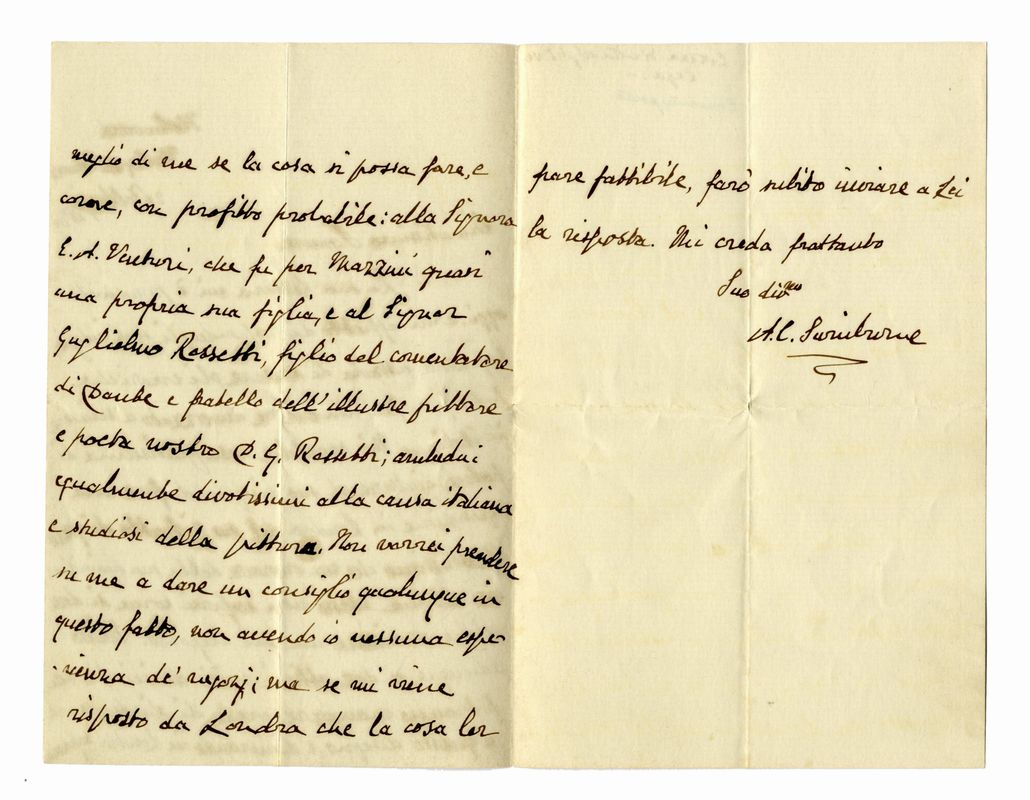 meglio di me se la cosa si possa fare, e
come, con profitto probabile: alla Signora
E. A. Venturi, che fu per Mazzini quasi
una propria sua figlia, e al Signor
Guglielmo Rossetti, figlio del comentatore
di Dante e fratello dell' illustre pittore
e poeta nostro D. G. Rossetti; ambedui
egualmente divotissimi alla causa italiana
e studiosi della pittura. Non vorrei prendere
su me a dare un consiglio qualunque in
questo fatto, non avendo io nessuna espe-
rienza de' negozj; ma se mi viene
risposto da Londra che la cosa lor
pare fattibile, farò subito inviare a Lei
la risposta. Mi creda frattanto
Suo div.mo
A. C. Swinburne